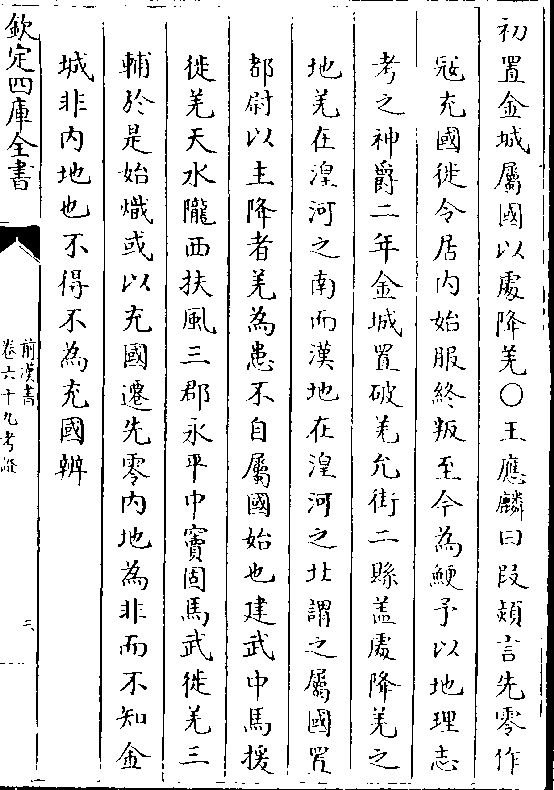 初置金城屬國以處降羌○王應麟曰段熲言先零作
寇充國徙令居内始服終叛至今為鯁予以地理志
考之神爵二年金城置破羌允街二縣盖處降羌之
地羌在湟河之南而漢地在湟河之北謂之屬國置
都尉以主降者羌為患不自屬國始也建武中馬援
徙羌天水隴西扶風三郡永平中竇固馬武徙羌三
輔於是始熾或以充國遷先零内地為非而不知金
城非内地也不得不為充國辨
欽定四庫全書
前漢書
卷六十九考證